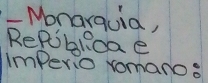 - Monarquia,
República e
Imperio romano: